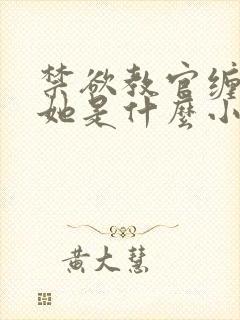 禁欲教官缠
她是什麼小
黄大慧